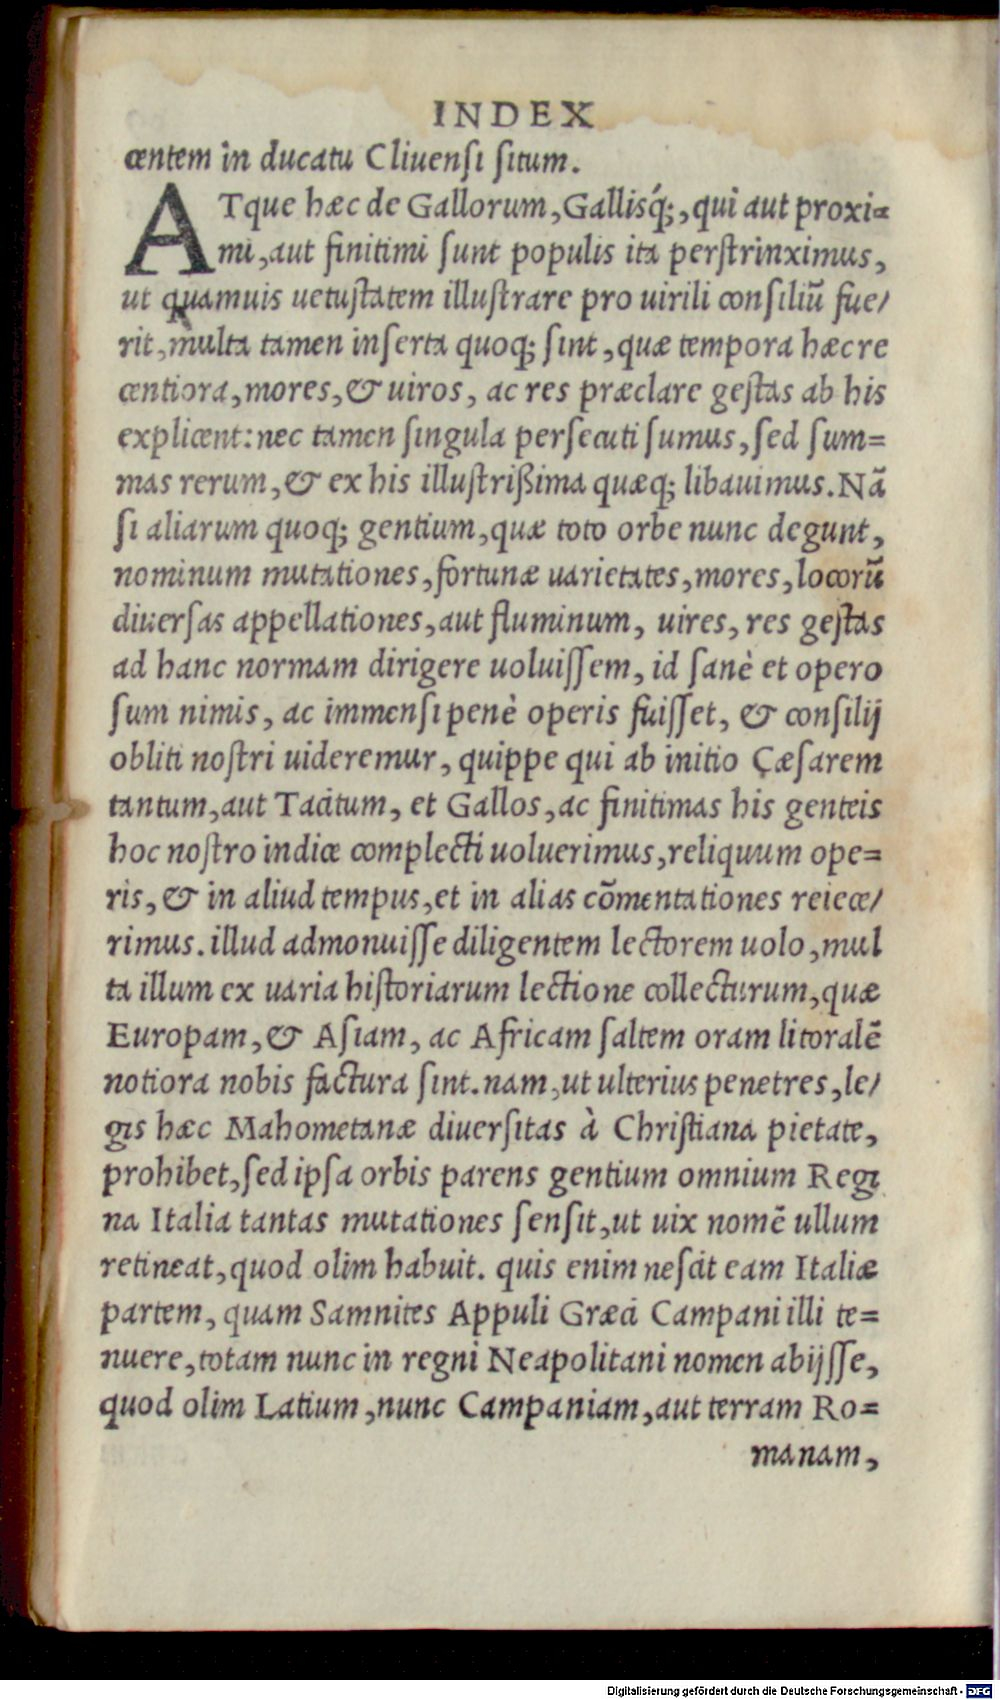 INDEX
centem in ducatu Cliuensi situm.
ATque hæc de Gallorum, Gallisq́;, qui aut proxi=
mi, aut finitimi sunt populis ita perstrinximus,
ut quamuis uetustatem illustrare pro uirili consiliũ fue/
rit, multa tamen inserta quoq; sint, quæ tempora hæc re
centiora, mores, & uiros, ac res præclare gestas ab his
explicent: nec tamen singula persecuti sumus, sed sum=
mas rerum, & ex his illustrißima quæq; libauimus. Nã
si aliarum quoq; gentium, quæ toto orbe nunc degunt,
nominum mutationes, fortunæ uarietates, mores, locorũ
diuersas appellationes, aut fluminum, uires, res gestas
ad hanc normam dirigere uoluissem, id sanè et opero
sum nimis, ac immensi penè operis fuisset, & consilij
obliti nostri uideremur, quippe qui ab initio Cæsarem
tantum, aut Tacitum, et Gallos, ac finitimas his genteis
hoc nostro indice complecti uoluerimus, reliquum ope=
ris, & in aliud tempus, et in alias cõmentationes reiece/
rimus. illud admonuisse diligentem lectorem uolo, mul
ta illum ex uaria historiarum lectione collecturum, quæ
Europam, & Asiam, ac Africam saltem oram litoralẽ
notiora nobis factura sint. nam, ut ulterius penetres, le/
gis hæc Mahometanæ diuersitas à Christiana pietate,
prohibet, sed ipsa orbis parens gentium omnium Regi
na Italia tantas mutationes sensit, ut uix nomẽ ullum
retineat, quod olim habuit. quis enim nescit eam Italiæ
partem, quam Samnites Appuli Græci Campani illi te=
nuere, totam nunc in regni Neapolitani nomen abijsse,
quod olim Latium, nunc Campaniam, aut terram Ro=
manam,
Digitalisierung gefördert durch die Deutsche Forschungsgemeinschaft - DFG